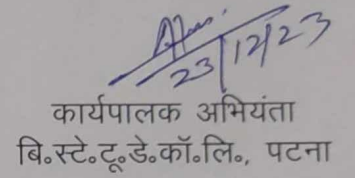 23/12/23
कार्यपालक अभियंता
बि॰स्टे॰टू॰डे॰कॉ॰लि॰, पटना